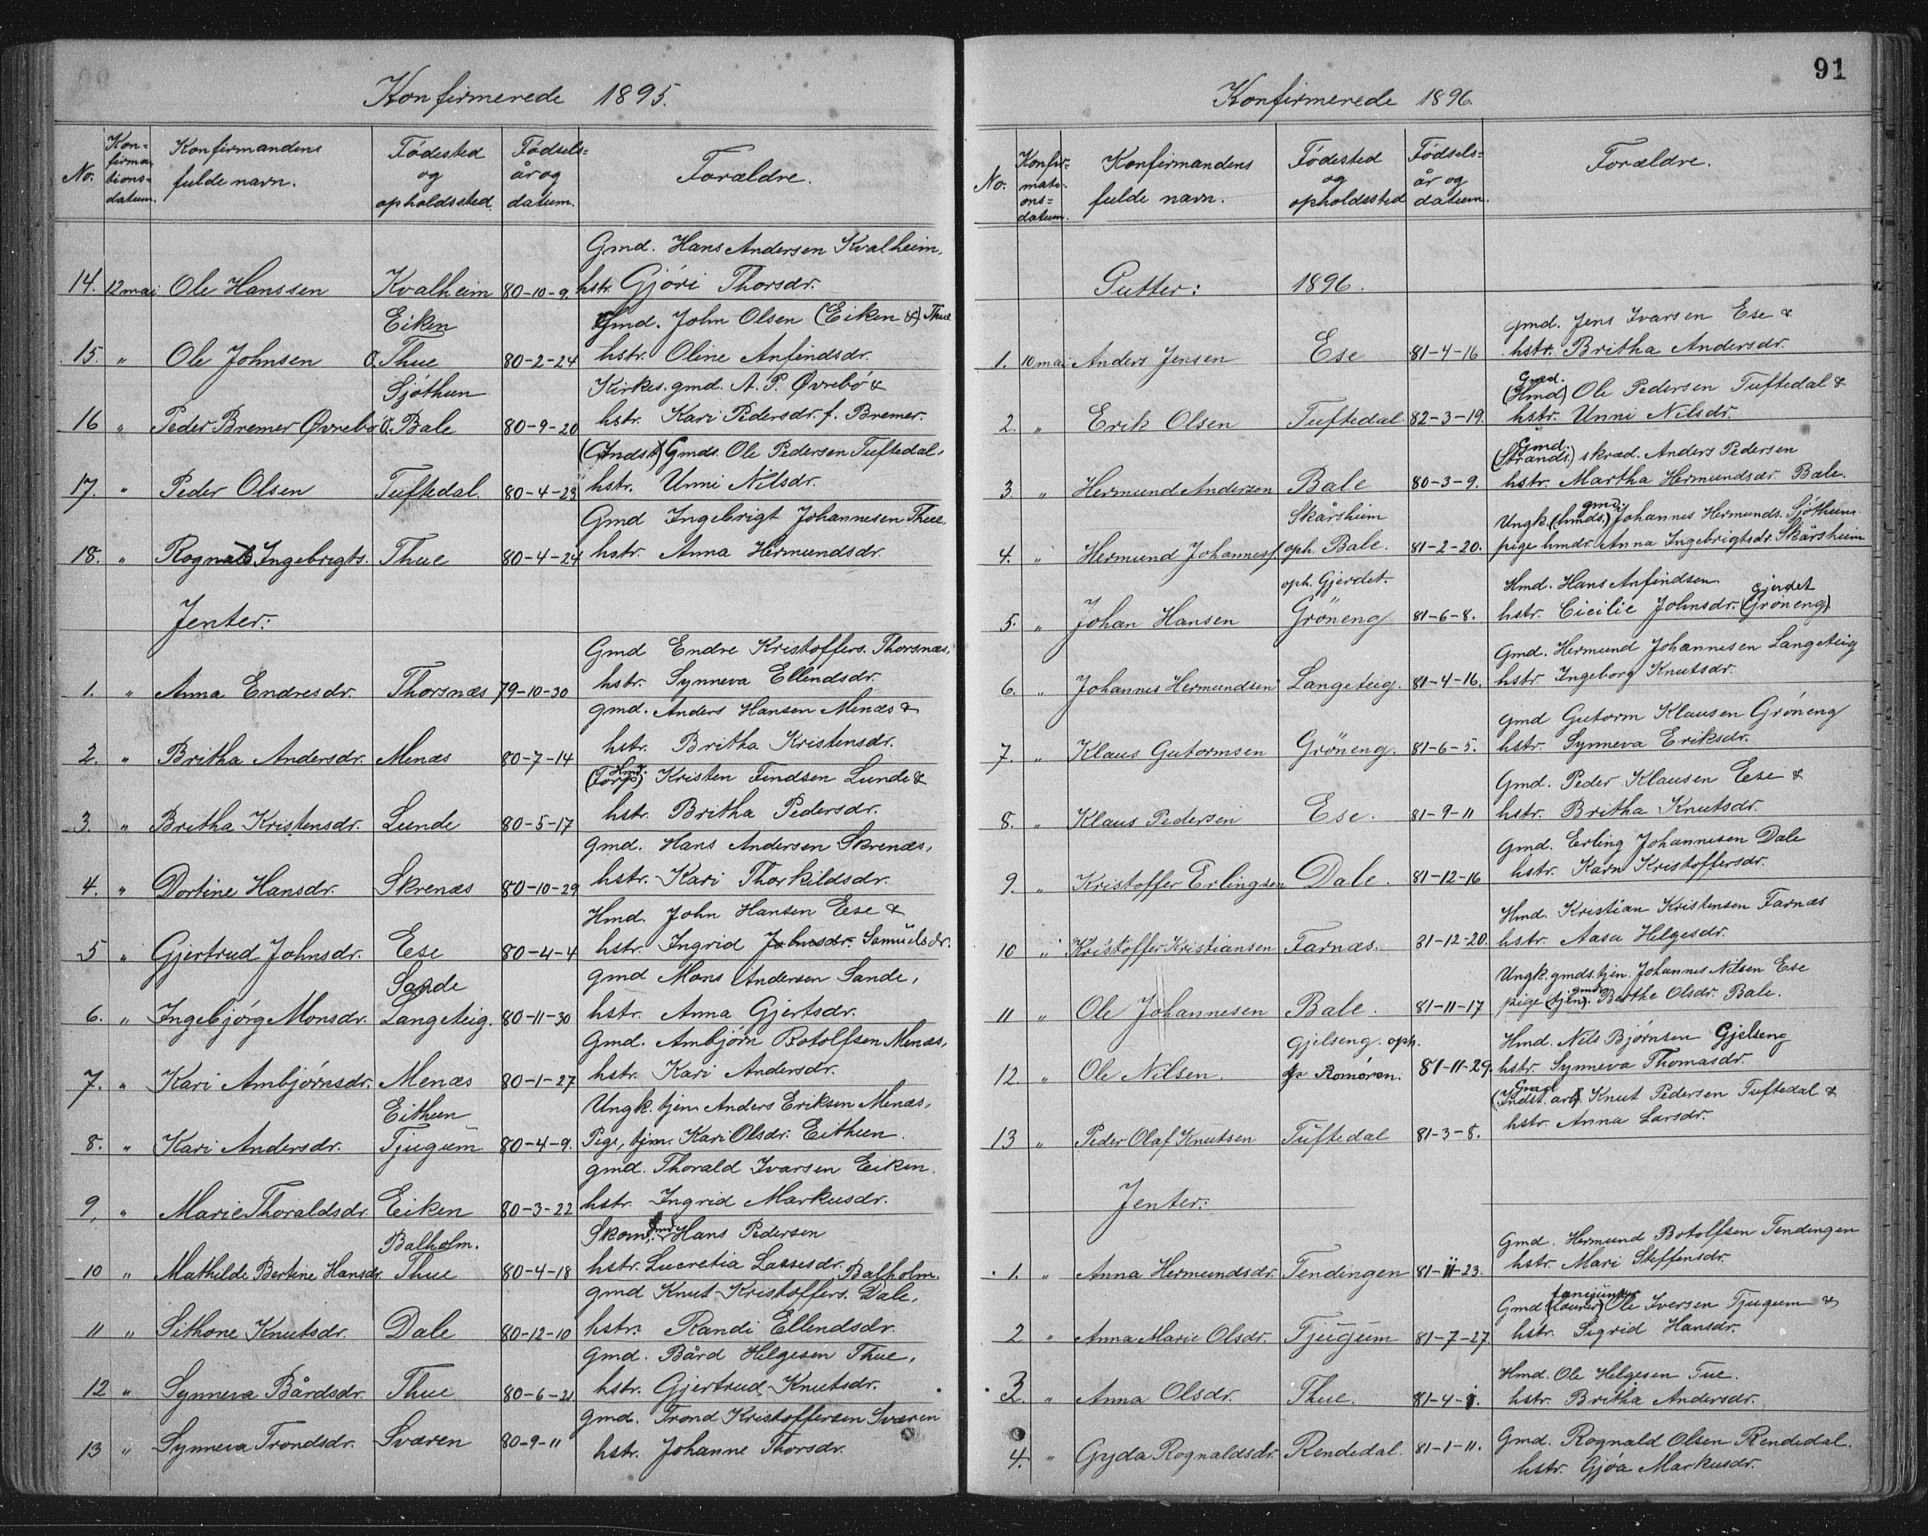 Konfirmerede 1895.
No. Konfirmationsdatum. Konfirmandens fulde navn. Fødested og opholdssted Fødsels= år og datum. Forældre.
Gmd. Hans Andersen Kvalheim,
14. 12 mai Ole Hanssen Kvalheim 80-10-9. hstr. Gjøri Thorsdr.
Eiken Gmd. John Olsen (Eiken &) Thue
15. " Ole Johnsen O. Thue 80-2-24 hstr. Oline Anfindsdr.
Sjøthun Kirkes. gmd. A. P. Øvrebö &
16 " Peder Bremer Øvrebö O. Bale 80-9-20 hstr. Kari Pedersdr. f. Bremer.
(Indst) Gmds. Ole Pedersen Tuftedal,
17. " Peder Olsen Tuftedal 80-4-23 hstr. Unni Nilsdr.
Gmd Ingebrigt Johannesen Thue,
18. " Rognald Ingebrigts. Thue 80-4-24 hstr. Anna Hermundsdr.
Jenter:
Gmd Endre Kristoffers. Thorsnæs,
1. " Anna Endresdr. Thorsnæs 79-10-30 hstr. Synneva Ellendsdr.
gmd. Anders Hansen Menæs &
2. " Britha Andersdr. Menæs 80-7-14 hstr. Britha Kristensdr.
Hmd.
(Torp) Kristen Findsen Lunde &
3. " Britha Kristensdr. Lunde 80-5-17 hstr. Britha Pedersdr.
gmd. Hans Andersen Skrenæs,
4. " Dortine Hansdr. Skrenæs 80-10-29 hstr. Kari Thorkildsdr.
Hmd. John Hansen Ese &
5 " Gjertrud Johnsdr. Ese 80-4-4 hstr. Ingrid Johnsdr. Samuelsdr.
Sande gmd Mons Andersen Sande,
6. " Ingebjørg Monsdr. Langeteig. 80-11-30 hstr. Anna Gjertsdr.
Gmd. Ambjörn Botolfsen Menæs,
7. " Kari Ambjørnsdr. Menæs 80-1-27 hstr. Kari Andersdr.
Eithun Ungk. tjen. Anders Eriksen Menæs,
8. " Kari Andersdr. Tjugum 80-4-9. Pige, tjen. Kari Olsdr. Eithun.
gmd. Thorald Ivarsen Eiken.
9. " Marie Thoraldsdr. Eiken 80-3-22 hstr. Ingrid Markusdr.
Balholm. Skom. Hans Pedersen
10 " Mathilde Bertine Hansdr. Thue 80-4-18 hstr. Lucretia Lassesdr. Balholm.
gmd Knut Kristoffers. Dale,
11 " Sithone Knutsdr. Dale 80-12-10 hstr. Randi Ellendsdr.
Gmd. Bård Helgesen Thue,
12 " Synneva Bårdsdr. Thue 80-6-21 hstr. Gjertrud Knutsdr.
gmd. Trond Kristoffersen Sværen
13 " Synneva Trondsdr. Sværen 80-9-11 hstr. Johanne Thorsdr.
91
Konfirmerede 1896.
No. Konfirmationsdatum. Konfirmandens fulde navn. Fødested og opholdssted Fødsels= år og datum. Forældre.
Gutter: 1896.
gmd. Jens Ivarsen Ese &
1. 10 mai Anders Jensen Ese 81-4-16 hstr. Britha Andersdr.
Gmd.
(Hmd) Ole Pedersen Tuftedal &
2. " Erik Olsen Tuftedal 82-3-19. hstr. Unni Nilsdr.
Gmd.
(Strands) skræd. Anders Pedersen
3 " Hermund Andersen Bale 80-3-9. hstr. Martha Hermundsdr Bale.
Skårsheim Ungk. (hmds.) gmds Johannes Hermunds. Sjöthun.
4. " Hermund Johannes. oph. Bale. 81-2-20. pige hmdr. Anna Ingebrigtsdr. Skårsheim
oph. Gjerdet. Hmd. Hans Anfindsen.
5. " Johan Hansen Gröneng 81-6-8. hstr. Cicilie Johnsdr. (Gröneng) Gjerdet
Gmd. Hermund Johannesen Langeteig
6. " Johannes Hermundsen Langeteig. 81-4-16. hstr. Ingeborg Knutsdr.
gmd Gutorm Klausen Gröneng
7. " Klaus Gutormsen Gröneng. 81-6-5. hstr. Synneva Eriksdr.
Gmd. Peder Klausen Ese &
8. " Klaus Pedersen Ese. 81-9-11 hstr. Britha Knutsdr.
Gmd. Erling Johannesen Dale
9. " Kristoffer Erlingsen Dale. 81-12-16 hstr. Kari Kristoffersdr.
Hmd. Kristian Kristensen Farnæs
10 " Kristoffer Kristiansen Farnæs. 81-12-20. hstr. Aasa Helgesdr.
Ungk. gmds. tjen. Johannes Nilsen Ese
11 " Ole Johannesen Bale. 81-11-17 pige (tjen) gmds Berthe Olsdr. Bale.
Gjelseng. oph. Hmd. Nils Bjørnsen Gjelseng
12. " Ole Nilsen. Romören. 81-11-29. hstr. Synneva Thomasdr.
Gmd
(Indst. arb) Knut Pedersen Tuftedal &
13 " Peder Olaf Knutsen Tuftedal 81-3-8. hstr. Anna Larsdr.
Jenter:
Gmd. Hermund Botolfsen Tendingen
1. " Anna Hermundsdr. Tendingen 81-11-23. hstr. Mari Steffensdr.
Gmd Ole Iversen Tjugum &
2 " Anna Marie Olsdr. Tjugum 81-7-27. hstr. Sigrid Hansdr.
Hmd. Ole Helgesen Tue.
3. " Anna Olsdr. Thue. 81-4-1. hstr. Britha Andersdr.
Gmd. Rognald Olsen Rendedal.
4. " Gyda Rognaldsdr. Rendedal. 81-1-11. hstr. Gjøa Markusdr.